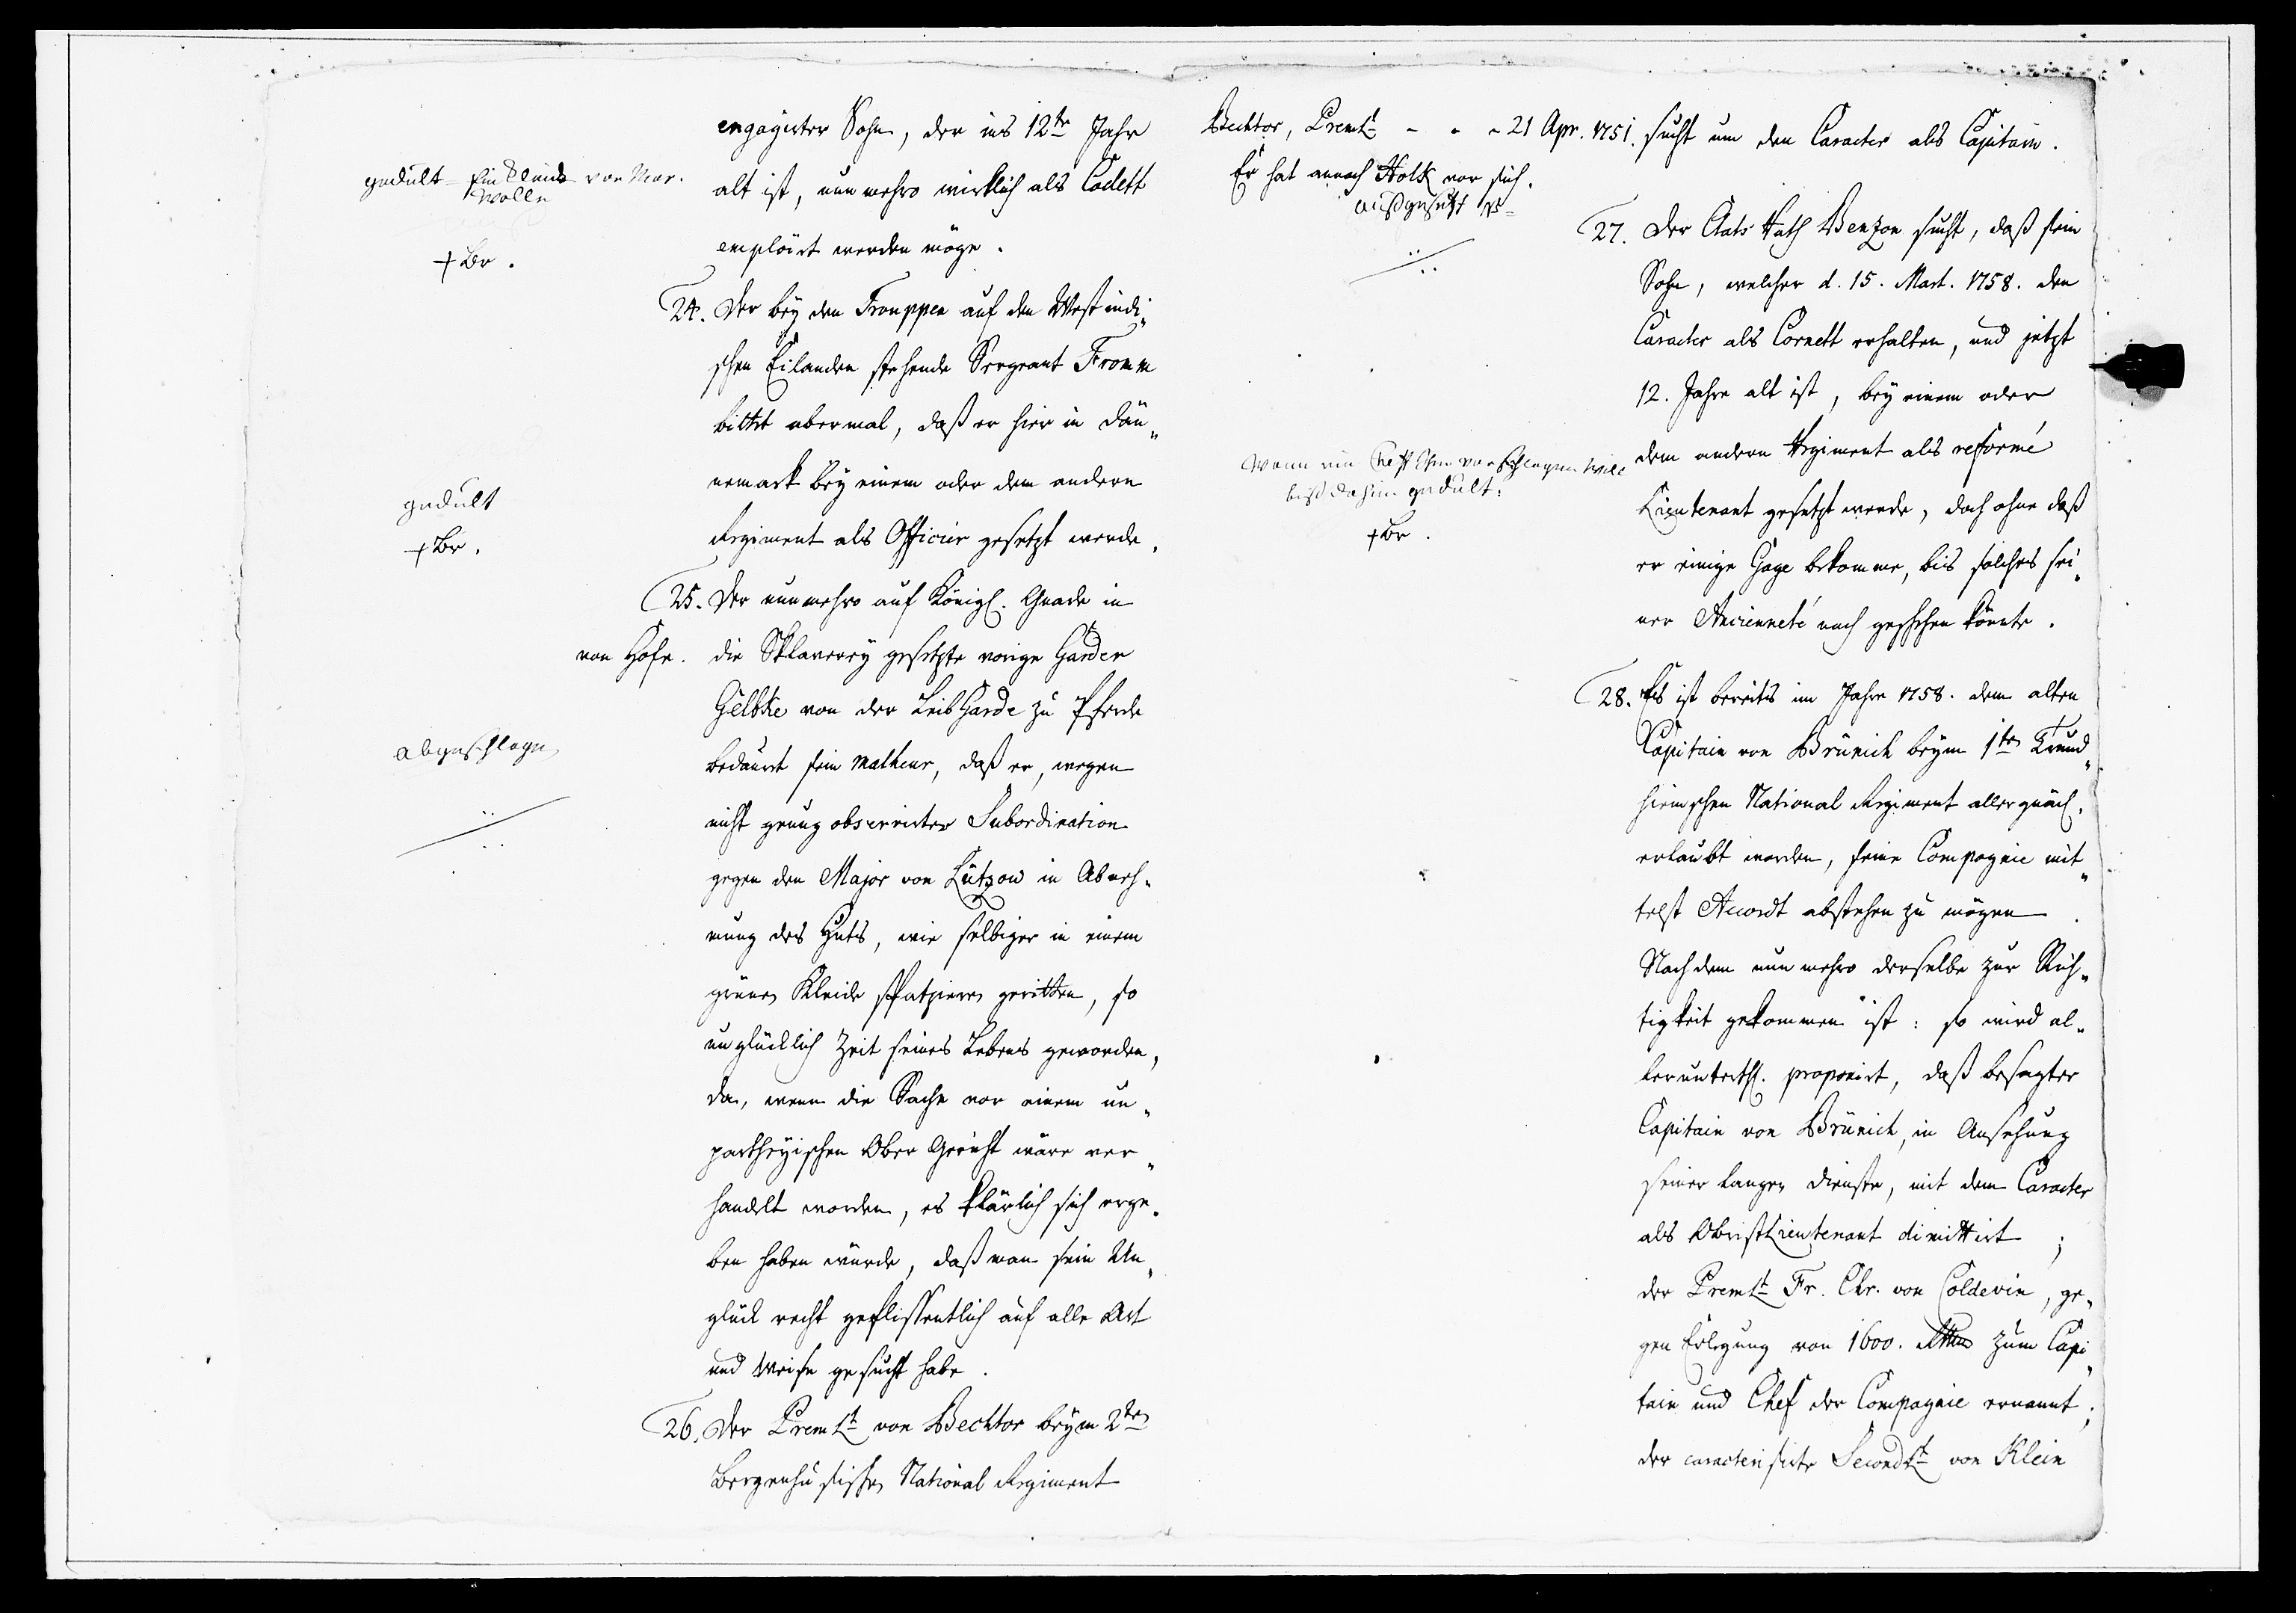 engagirter Sohn, der ins 12te Jahr
alt ist, nunmehro wirklich als Cadett
emploirt werden möge.
gedult von Mar.
wolle
+ Br.
24. Der bey den Trouppen auf den Westindi„
schen Eilanden stehende Sergeant Fromm
bittet abermal, daß er hier in Dän„
nemark bey einem oder dem andern
Regiment als Officier gesetzt werde.
gedult
+ Br.
25. Der nunmehro auf Königl. Gnade in
von Hofe. die Sklaverey gesetzte vorige Garder
Gelbke von der LeibGarde zu Pferde
bedaurt sein malheur, daß er, wegen
nicht genug observirter Subordination
gegen den Major von Lützow in Abneh„
mung des Huts, wie selbiger in einem
grünen Kleide spatzieren geritten, so
unglücklich Zeit seines Lebens geworden,
da, wenn die Sache vor einem un„
partheyischen Ober Gericht wäre ver„
handelt worden, es klärlich sich erge„
ben haben würde, daß man sein Un„
glück recht geflissentlich auf alle Art
und Weise gesucht habe.
abgeschlagen
26. Der Premlt von Bechtor beym 2ten
Bergenhusischen National Regiment
Bechtor, Premlt - - - 21 Apr. 1751. sucht um den Caracter als Capitain.
Er hat annoch Holk vor sich.
ausgesetzt
27. Der Etats Rath Benzon sucht, daß sein
Sohn, welcher d. 15. Mart. 1758. den
Caracter als Cornett erhalten, und jetzt
12. Jahre alt ist, bey einem oder
dem andern Regiment als reformé
Lieutenant gesetzt werde, doch ohne daß
er einige Gage bekomme, bis solches sei„
ner Ancienneté nach geschehen könnte.
Wann ein Chef Ihm vorschlagen will
biß dahin gedult:
+ Br.
28. Es ist bereits im Jahre 1758. dem alten
Capitain von Brünich beym 1ten Trund„
hiemschen National Regiment allergnäd.
erlaubt worden, seine Compagnie mit„
telst Accordt abstehen zu mögen.
Nachdem nunmehro derselbe zur Rich„
tigkeit gekommen ist: so wird al„
lerunterth. proponirt, daß besagter
Capitain von Brünich, in Ansehung
seiner langen Dienste, mit dem Caracter
als ObristLieutenant dimittirt;
der Premlt Fr. Chr. von Coldevin, ge„
gen Erlegung von 1600. Rthlr zum Capi„
tain und Chef der Compagnie ernannt;
der caracterisirte Secondlt von Klein